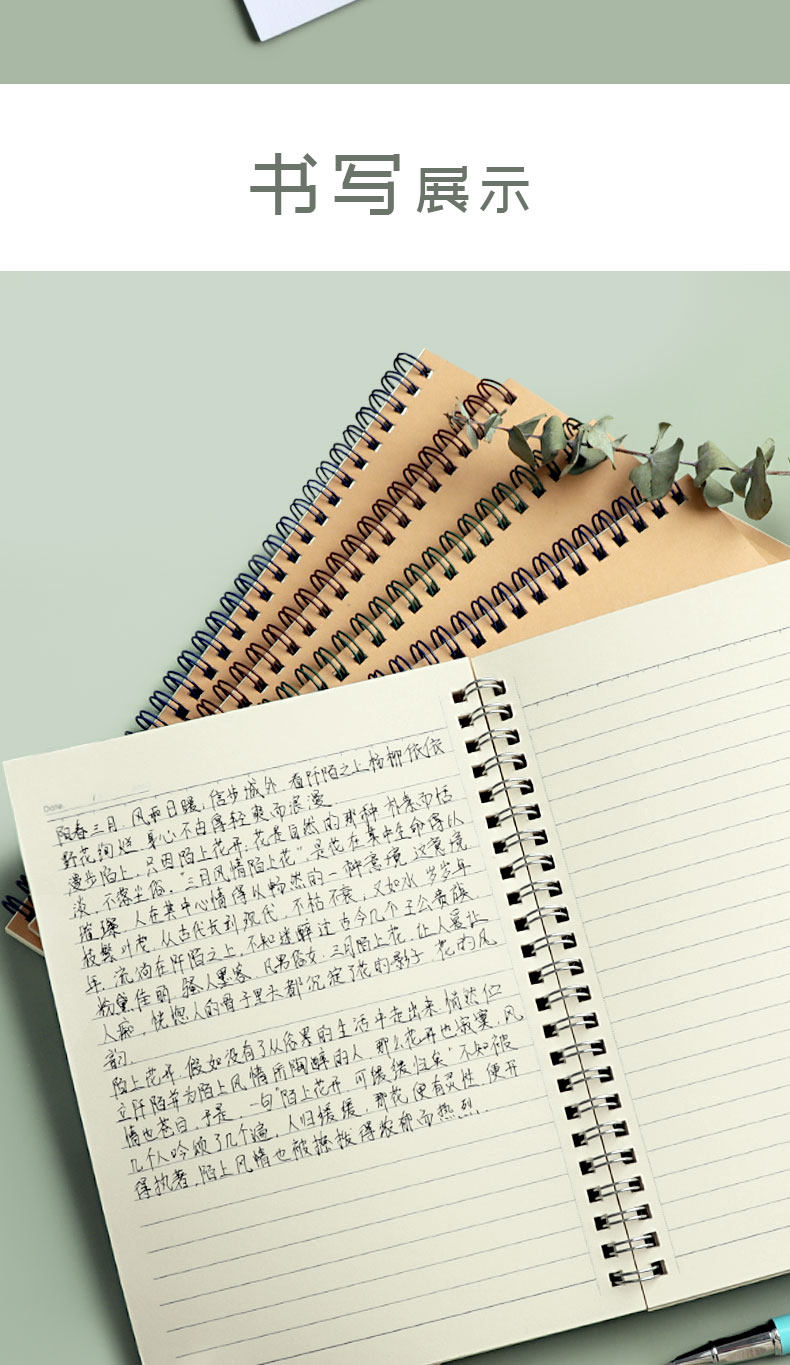 书写展示
Date
阳春三月，风和日暖，信步城外，看阡陌之上杨柳依依
野花绚烂，身心不由得轻爽而浪漫
漫步陌上，只因陌上花开，花是自然的那种，朴素而恬
淡，不落尘俗。"三月风情陌上花"，是花在集中生命得以
璀璨，人在其中心情得以畅然的一种意境，这意境
枝繁叶茂，从古代长到现代，不枯不衰，又如水，岁岁年
年，流淌在阡陌之上，不知迷醉过古今几个王公贵族，
粉黛佳丽，骚人墨客，凡男俗女，三月陌上花，让人爱让
人痴，恍惚人的骨子里头都沉淀了花的影子，花的风
韵
陌上花开，假如没有了从俗累的生活中走出来，悄然伫
立阡陌并为陌上风情所陶醉的人，那么花开也寂寞，风
情也苍白，于是，一句"陌上花开，可缓缓归矣"，不知被
几个人吟颂了几个遍，人归缓缓，那花便有灵性，便开
得执着，陌上风情也被撩拨得浓郁而热烈．